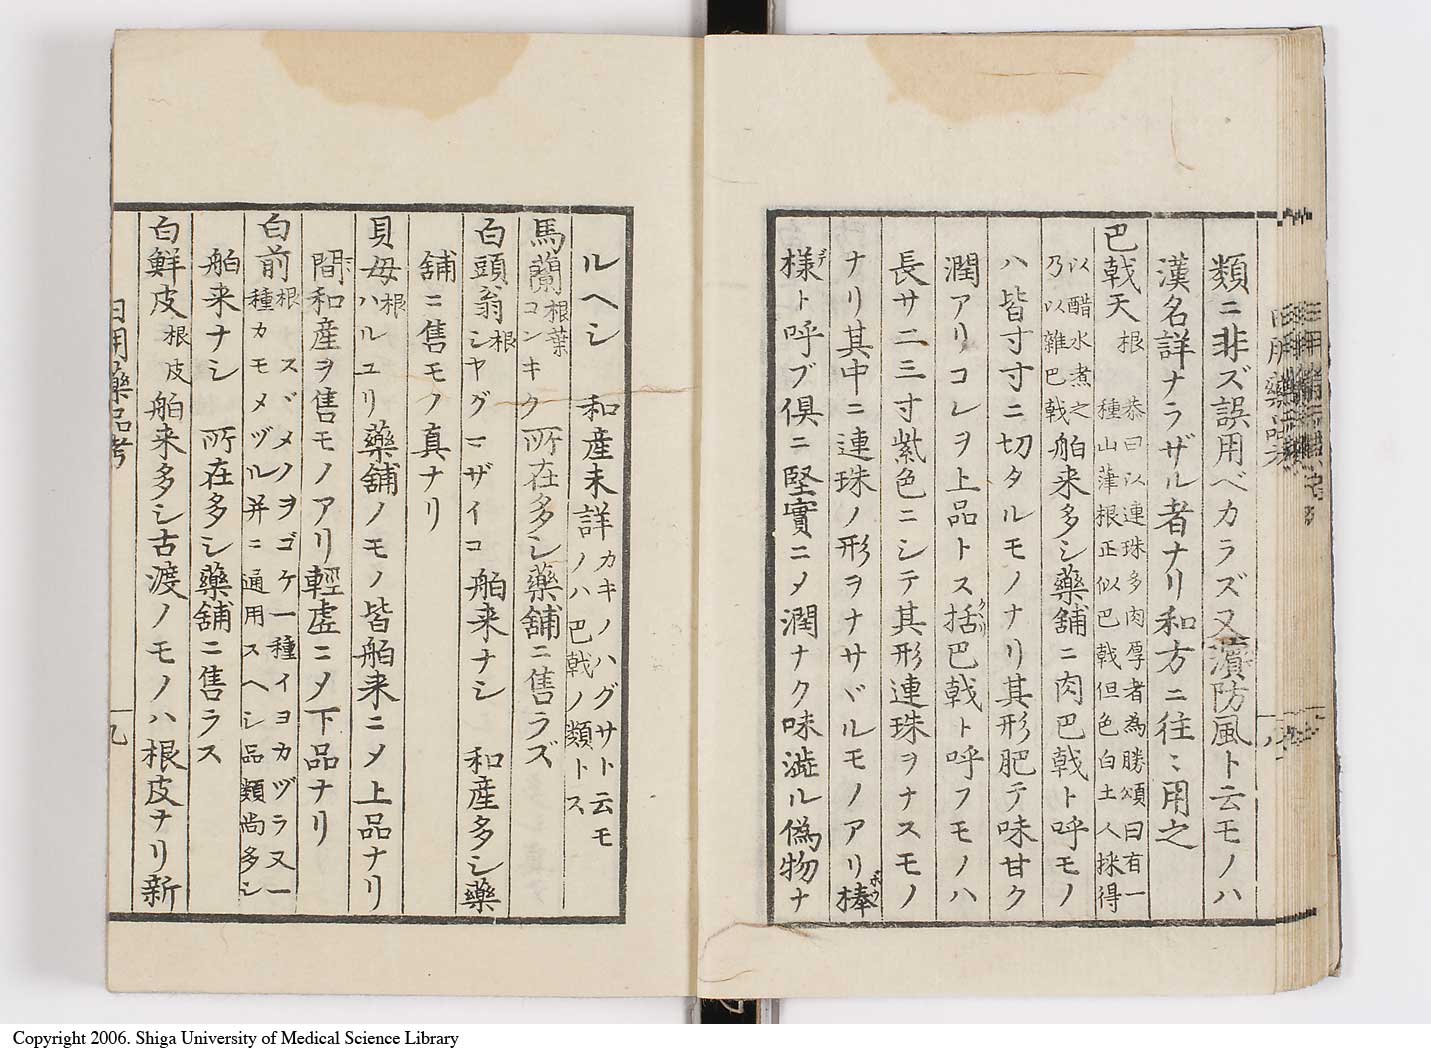 類ニ非ズ誤用ベカラズ又濱防風ト云モノハ
漢名詳ナラザル者ナリ和方ニ往々用之
巴戟天 根 恭曰以連珠多肉厚者為勝頌曰有一
種山葎根正似巴戟但色白土人採得
以醋水煮之
乃以雜巴戟 舶来多シ藥舗ニ肉巴戟ト呼モノ
ハ皆寸寸ニ切タルモノナリ其形肥テ味甘ク
潤アリコレヲ上品トス括巴戟ト呼フモノハ
長サ二三寸紫色ニシテ其形連珠ヲナスモノ
ナリ其中ニ連珠ノ形ヲナサヾルモノアリ棒
様ト呼ブ倶ニ堅實ニメ潤ナク味澁ル偽物ナ
ルヘシ 和産未詳 カキノハグサト云モ
ノハ巴戟ノ類トス
馬蘭 根葉 コンギク 所在多シ藥舗ニ售ラズ
白頭翁 根 シヤグマザイコ 舶来ナシ 和産多シ藥
舗ニ售モノ真ナリ
貝母 根 ハルユリ 藥舗ノモノ皆舶来ニメ上品ナリ
間和産ヲ售モノアリ輕虚ニメ下品ナリ
白前 根 スヾメノヲゴケ一種イヨカヅラ又一
種カモメヅル并ニ通用スヘシ品類尚多シ
舶来ナシ 所在多シ藥舗ニ售ラス
白鮮皮 根皮 舶来多シ古渡ノモノハ根皮ナリ新
日用藥品考
九
Copyright 2006. Shiga University of Medical Science Library